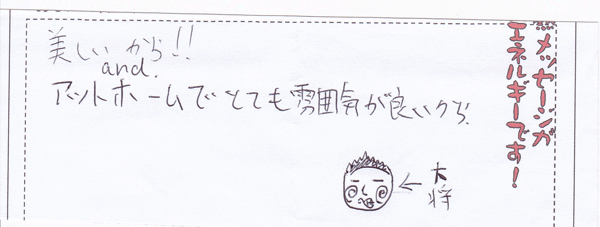 美しいから!!
and.
アットホームでとても雰囲気が良いから.
←大将
メッセージが
エネルギーです!